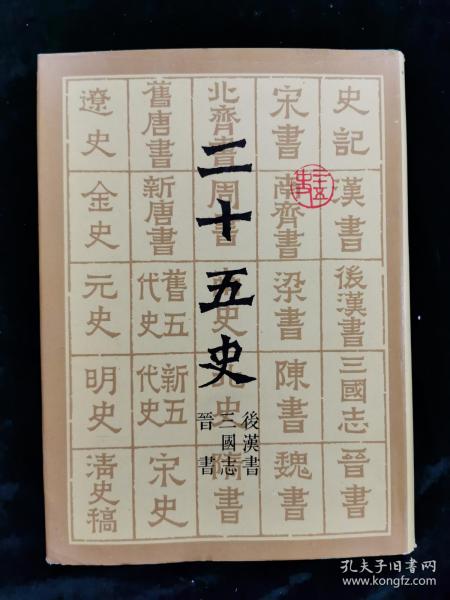 二十五史
後漢書
三國志
晉書
史記
漢書
後漢書
三國志
晉書
宋書
南齊書
梁書
陳書
魏書
北齊書
周書
史
北史
隋書
舊唐書
新唐書
舊五
代史
新五
代史
宋史
遼史
金史
元史
明史
清史稿
孔夫子旧书网
www.kongfz.com